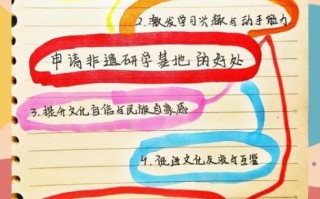 2. 激发学习兴趣与动手能力
申请非遗研学基地的好处
3. 提升文化自信与民族自豪感
4. 促进文化交流与互鉴